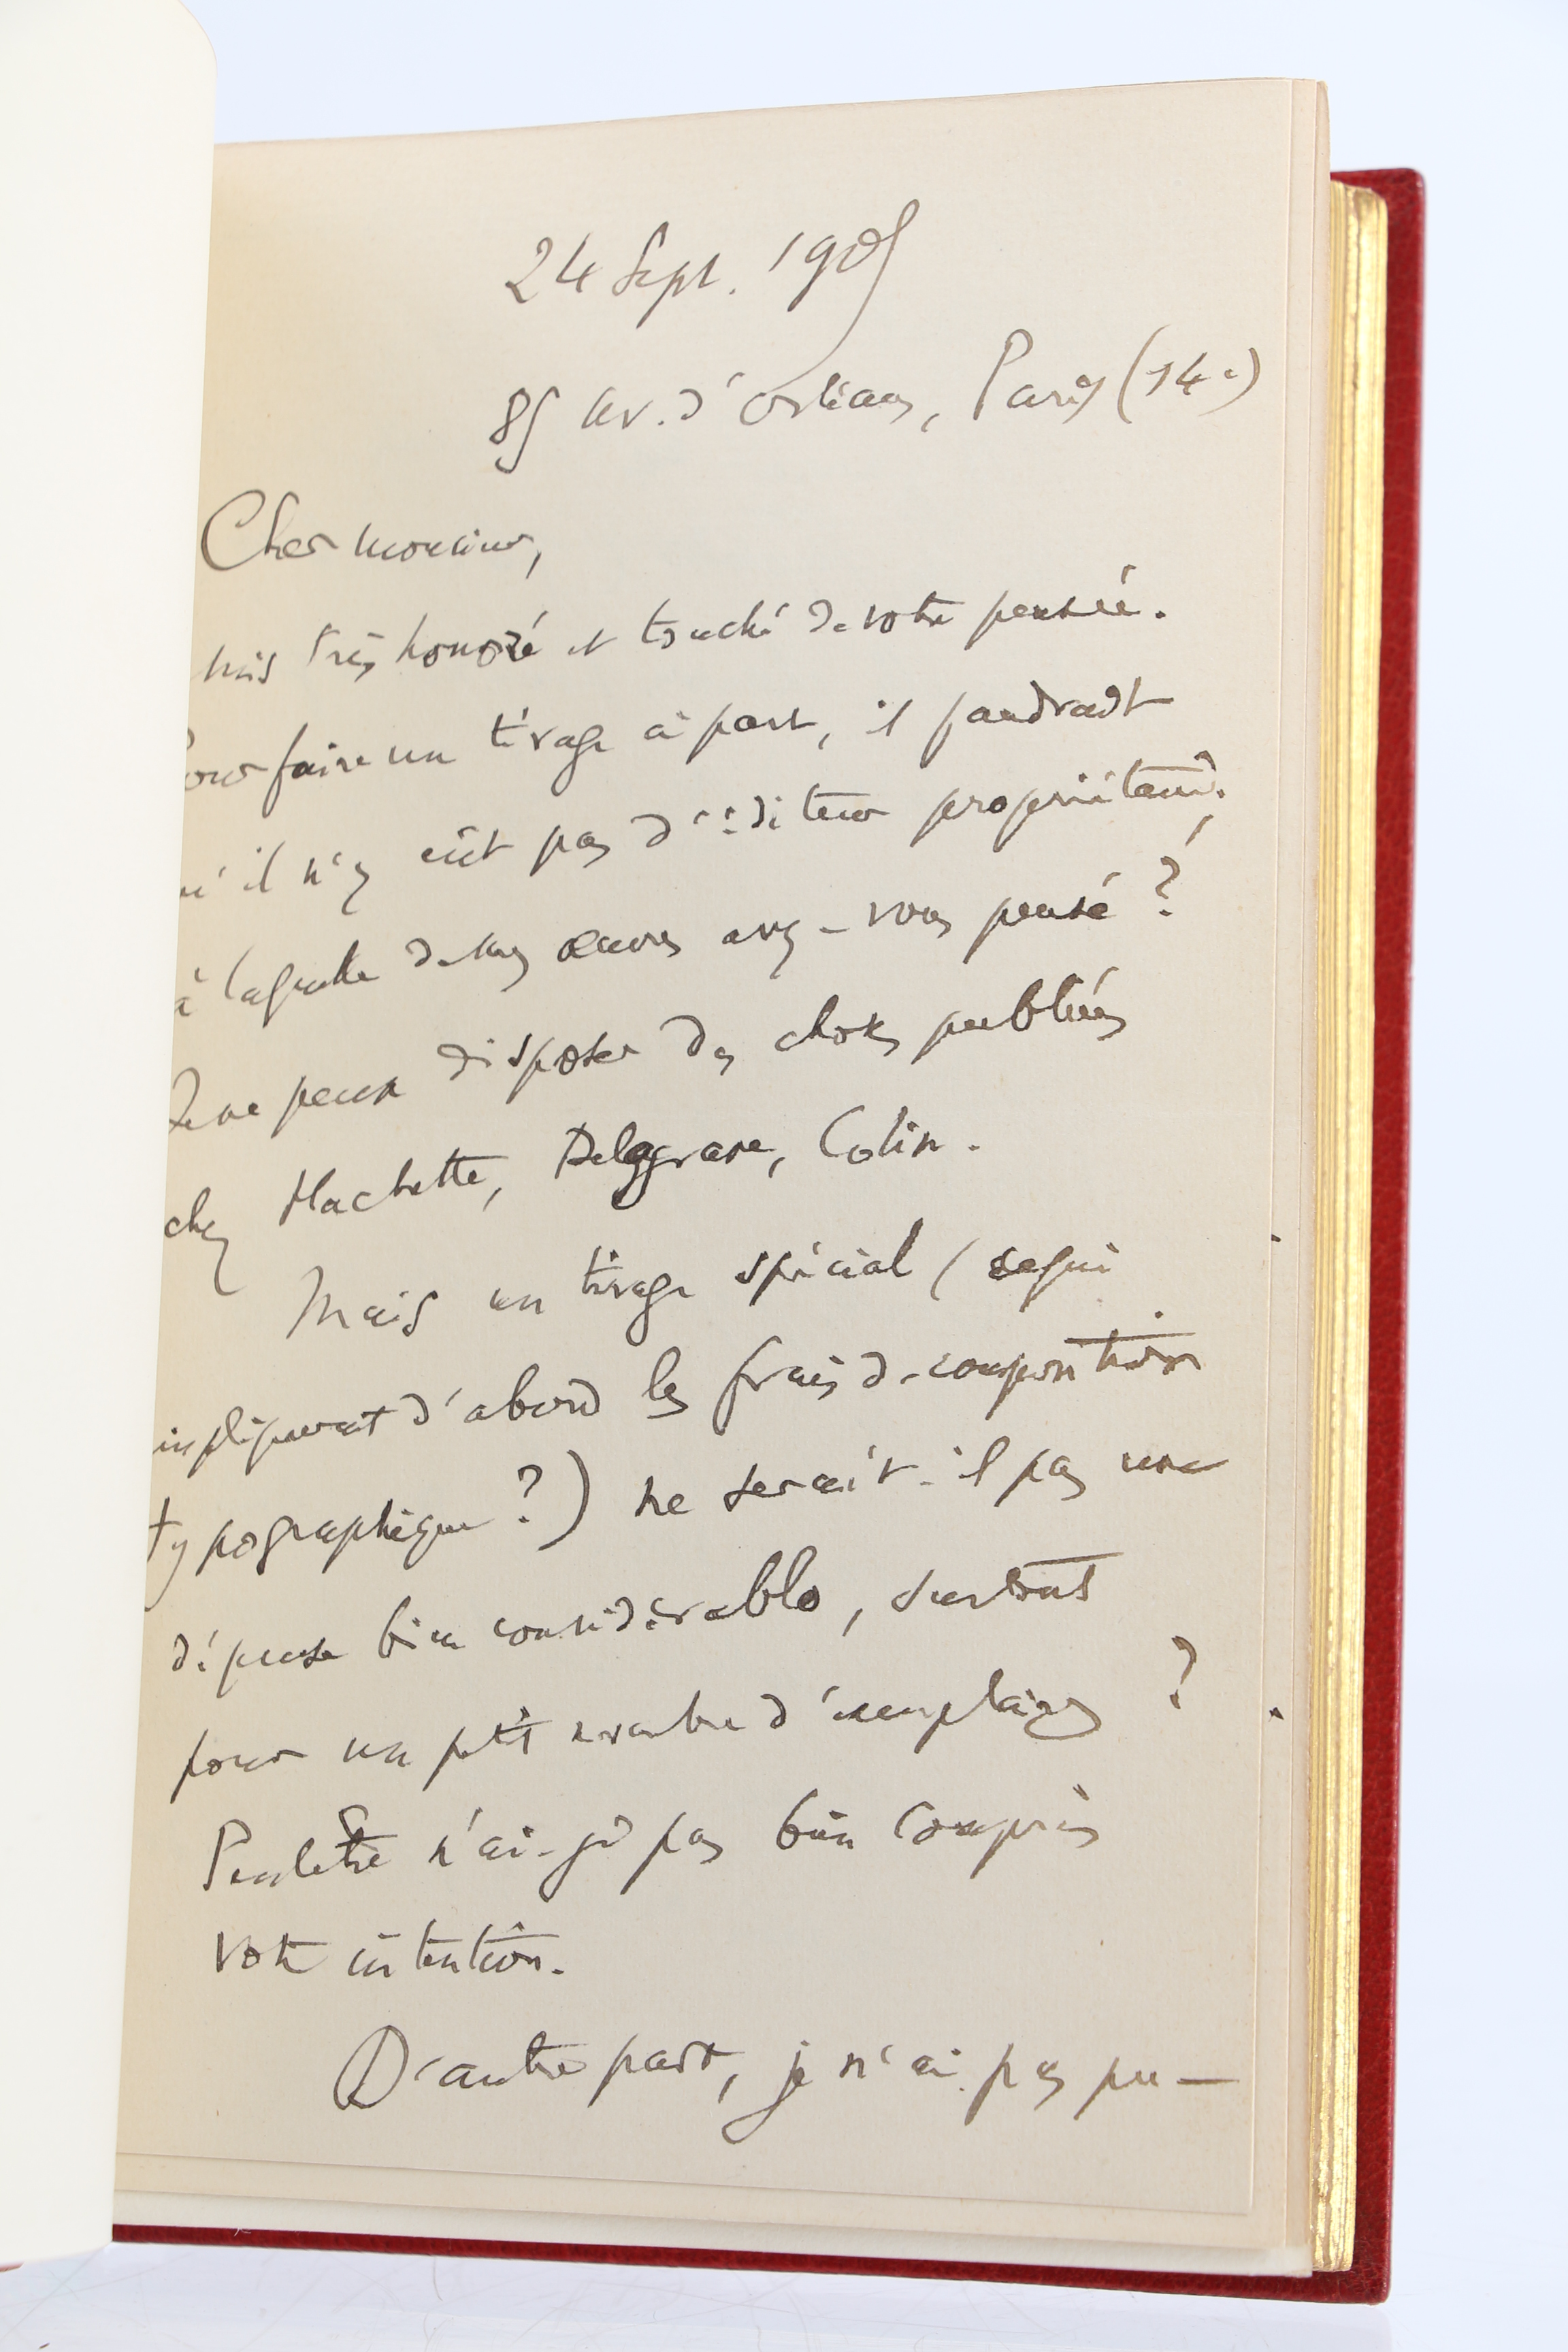 24 Sept. 1905
85 av. d'Orléans, Paris (14e)
Cher monsieur,
suis très honoré et touché de votre pensée.
Pour faire un tirage à part, il faudrait
qu'il n'y eût pas d'éditeur propriétaire;
à laquelle de mes œuvres avez-vous pensé?
Je ne peux disposer des choses publiées
chez Hachette, Delagrave, Colin.
Mais un tirage spécial (ce qui
impliquerait d'abord les frais de composition
typographique?) ne serait-il pas une
dépense bien considérable, surtout
pour un petit nombre d'exemplaires?
Peut être n'ai-je pas bien compris
votre intention.
D'autre part, je n'ai pas pu-